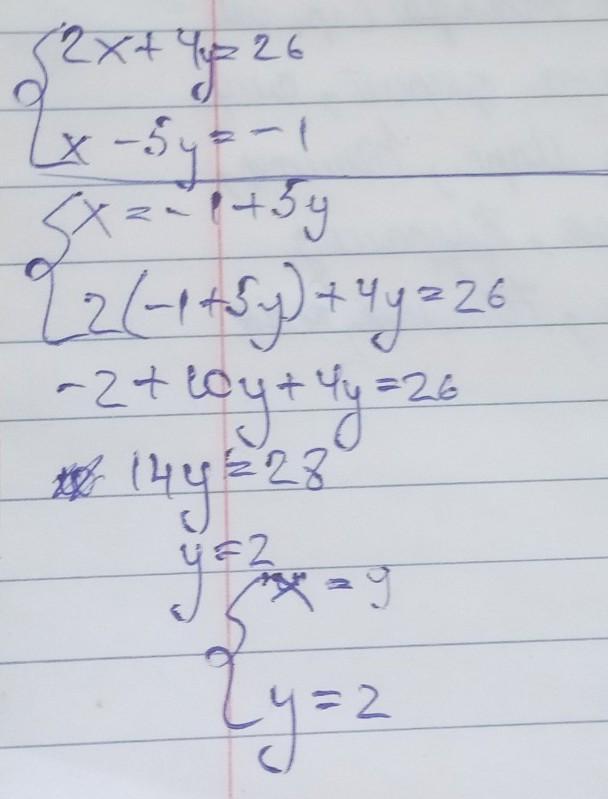 2x+4y=26
x-5y=-1
x=-1+5y
2(-1+5y)+4y=26
-2+10y+4y=26
14y=28
y=2
x=9
y=2